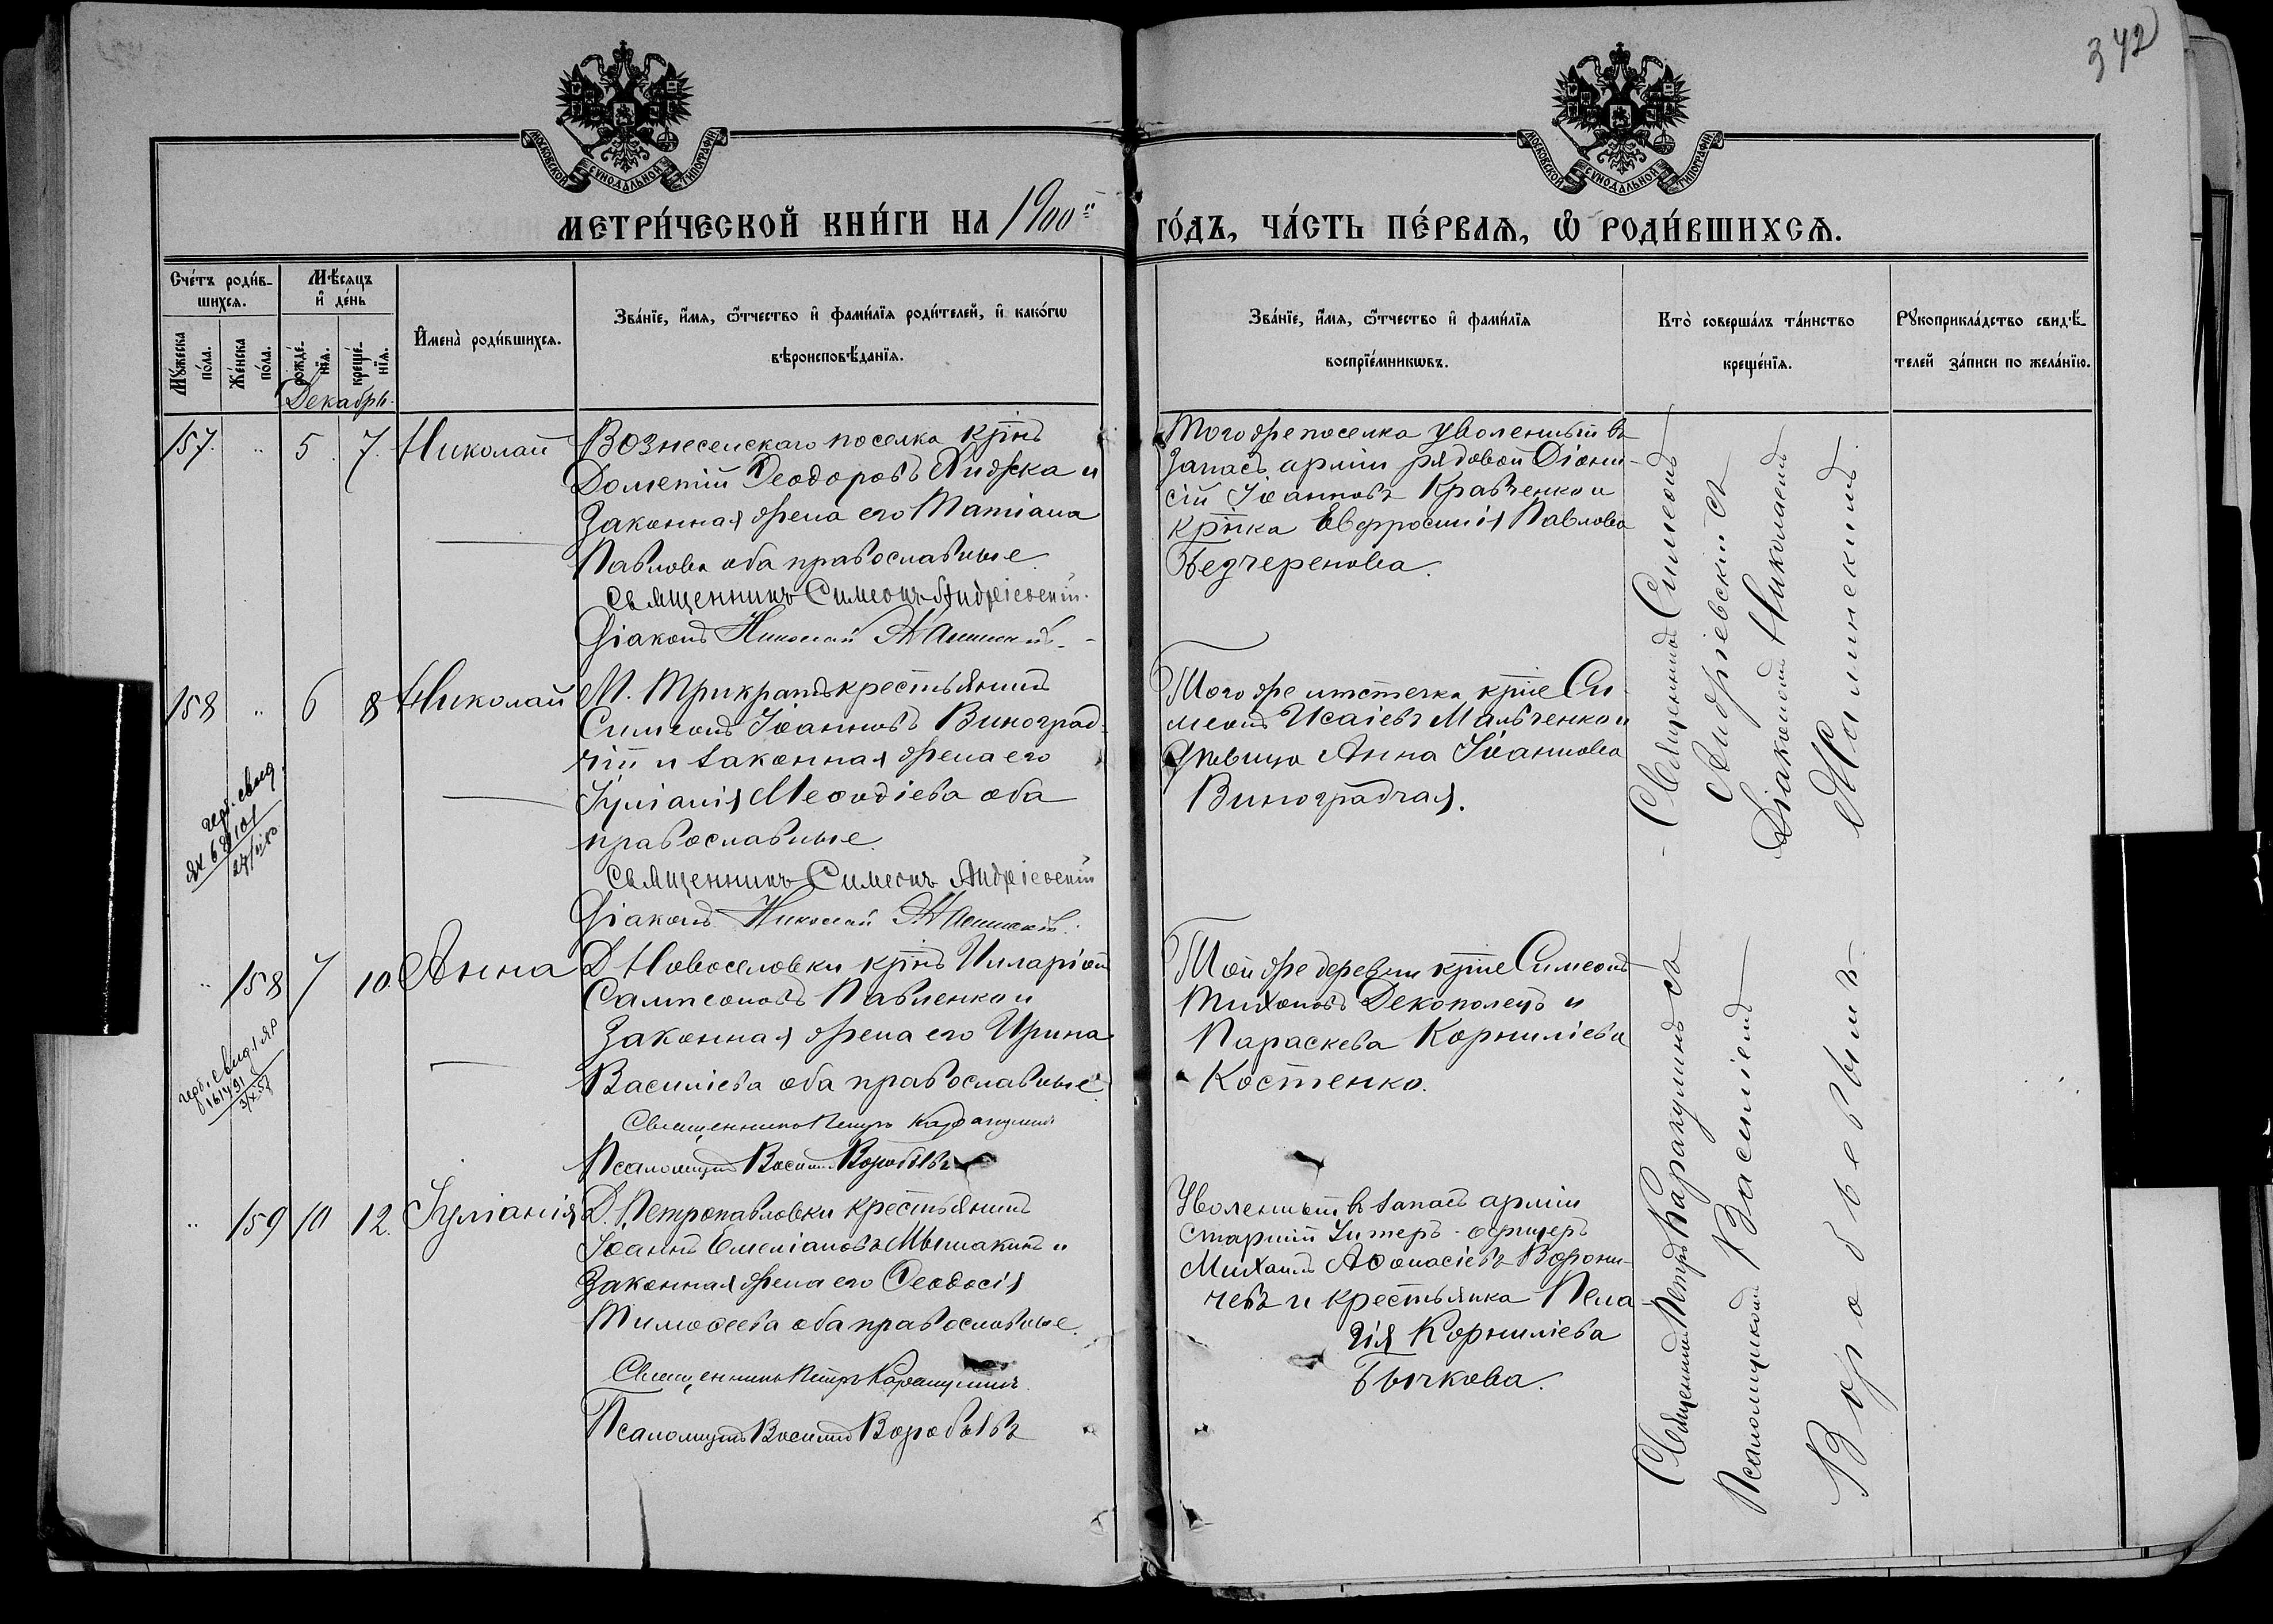 342
МОСКОВСКОЙ СѴНОДАЛЬНОЙ ТИПОГРАФІИ
МОСКОВСКОЙ СѴНОДАЛЬНОЙ ТИПОГРАФІИ
МЕТРИ́ЧЕСКОЙ КНИ́ГИ НА 1900 ГО́ДЪ, ЧА́СТЬ ПЕ́РВАѦ, Ѡ РОДИ́ВШИХСѦ.
Сче́тъ роди́в-
шихсѧ.
Мꙋ́жеска по́ла.
Же́нска по́ла.
Мѣ́сѧцъ
и҆ де́нь
рожде́-
нїѧ.
креще́-
нїѧ.
Декабрь.
И҆мена̀ роди́вшихсѧ.
Зва́нїе, и҆́мѧ, ѻ҆́тчество и҆ фами́лїѧ роди́телей, и҆ како́гѡ
вѣроисповѣ́данїѧ.
Зва́нїе, и҆́мѧ, ѻ҆́тчество и҆ фами́лїѧ
воспрїе́мникѡвъ.
Кто̀ соверша́лъ та́инство
креще́нїѧ.
Рꙋкоприкла́дство свидѣ́-
телей за́писи по жела́нїю.
157. " 5. 7. Николай
Вознесенскаго поселка крнъ
Дометій Ѳеодоровъ
и
Законная жена его Татіана
Павлова оба православные.
Священникъ Симеонъ Андріевскій.
Діаконъ Николай
Того же поселка уволенный въ
запасъ арміи рядовой Діони-
сій Іоанновъ Кравченко и
крнка Евфросинія Павлова
Безчеренова.
Священникъ Симеонъ
Андріевскій съ
Діакономъ Николаемъ
158 " 6 8 Николай
М. Трикратъ крестьянинъ
Симеонъ Іоанновъ Виноград-
чій и законная жена его
Іуліанія Меѳодіева оба
православные.
Священникъ Симеонъ Андріевскій
Діаконъ Николай
Того же мѣстечка крне Си-
меонъ Исаіевъ Мальченко и
дѣвица Анна Іоаннова
Виноградчая.
герб. свид.
" 158 7 10 Анна
Д. Новоселовки крнъ Иларіонъ
Сампсоновъ Павленко и
Законная жена его Ирина
Василіева оба православные.
Священникъ Петръ Каракулинъ
Псаломщикъ Василій Воробьевъ
Той же деревни крне Симеонъ
Тихоновъ Декополецъ и
Параскева Корниліева
Костенко.
герб. свид.
161491
Священникъ Петръ Каракулинъ съ
Псаломщикомъ Василіемъ
Воробьевымъ.
" 159 10 12. Іуліанія
Д. Петропавловки крестьянинъ
Іоаннъ Емеліановъ Мышакинъ и
Законная жена его Ѳеодосія
Тимоѳеева оба православные.
Священникъ Петръ Каракулинъ.
Псаломщикъ Василій Воробьевъ
Уволенный въ запасъ арміи
старшій Унтеръ-офицеръ
Михаилъ Аѳонасіевъ Ворони-
чевъ и крестьянка Пела-
гія Корниліева
Бычкова.